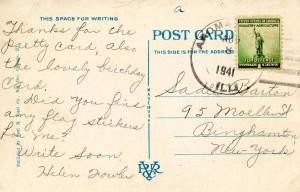 THIS SPACE FOR WRITING
Thanks for the
pretty card, also
the lovely birthday
Card.
Did you find
any flag stickers
for me?
Write Soon,
Helen Fowler
POST CARD
THIS SIDE IS FOR ADDRESS
1941
UNITED STATES OF AMERICA
INDUSTRY AGRICULTURE
FOR DEFENSE
Sadie Warton
95 Moeller St
Binghamton
New York